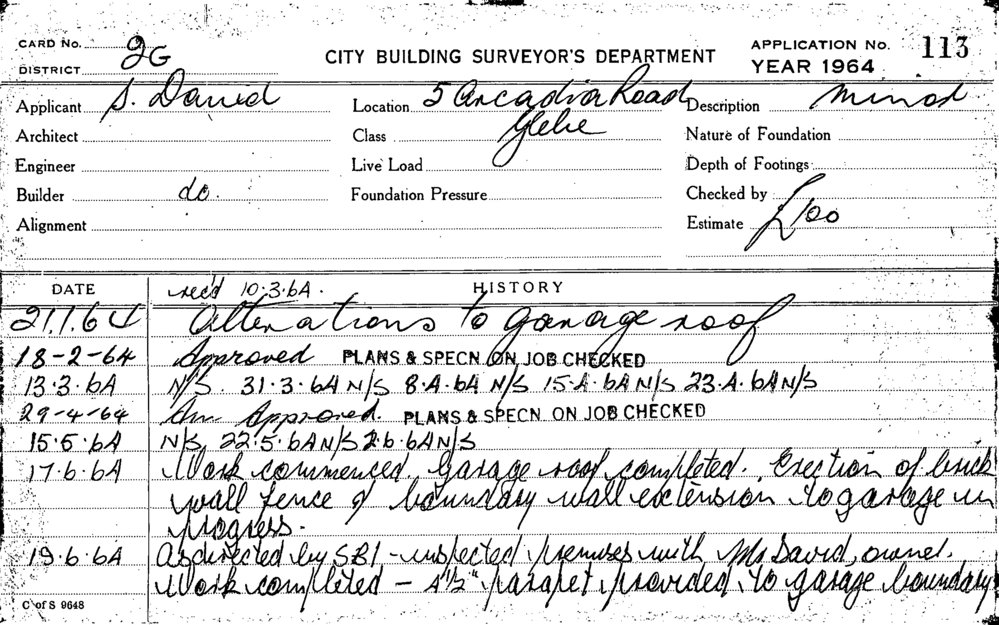 CARD No. 2G
DISTRICT
CITY BUILDING SURVEYOR'S DEPARTMENT
APPLICATION No. 113
YEAR 1964
Applicant S. David Location 5 Arcadia Road Description Minor
Architect Class Glebe Nature of Foundation
Engineer Live Load Depth of Footings
Builder do. Foundation Pressure Checked by
Alignment Estimate £100
DATE rec'd 10.3.64. HISTORY
21.1.64 Alterations to garage roof
18-2-64 Approved PLANS & SPECN. ON JOB CHECKED
13.3.64 N/S. 31.3.64 N/S 8.4.64 N/S 15.4.64 N/S 23.4.64 N/S
29-4-64 Am Approved. PLANS & SPECN. ON JOB CHECKED
15.5.64 N/S, 22.5.64 N/S 2.6.64 N/S
17.6.64 Work commenced, garage roof completed. Erection of brick
wall fence & boundary wall extension to garage in
progress.
19.6.64 As directed by SBI - inspected premises with Mr David, owner.
Work completed - 4½" parapet provided to garage boundary
C of S 9648